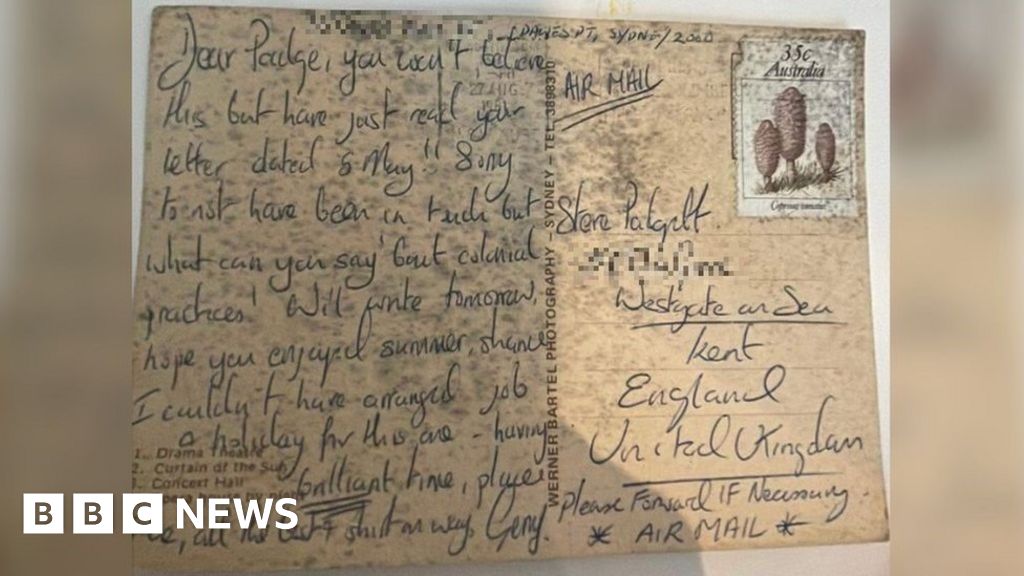 (DAWES PT, SYDNEY 2000
Dear Padge, you won't believe
this but have just read your
letter dated 5 May!! Sorry
to not have been in touch but
what can you say 'bout colonial
practices! Will write tomorrow,
hope you enjoyed summer, shame
I couldn't have arranged job
a holiday for this one - having
brilliant time, place
all the best & shirt on way. Gerry.
1. Drama Theatre
2. Curtain of the Sun
3. Concert Hall
27 AUG
WERNER BARTEL PHOTOGRAPHY – SYDNEY – TEL. 3898310
AIR MAIL
35c
Australia
Coprinus comatus
Steve Padgett.
Westgate on Sea
Kent
England
United Kingdom
Please Forward IF Necessary.
* AIR MAIL *
BBC NEWS